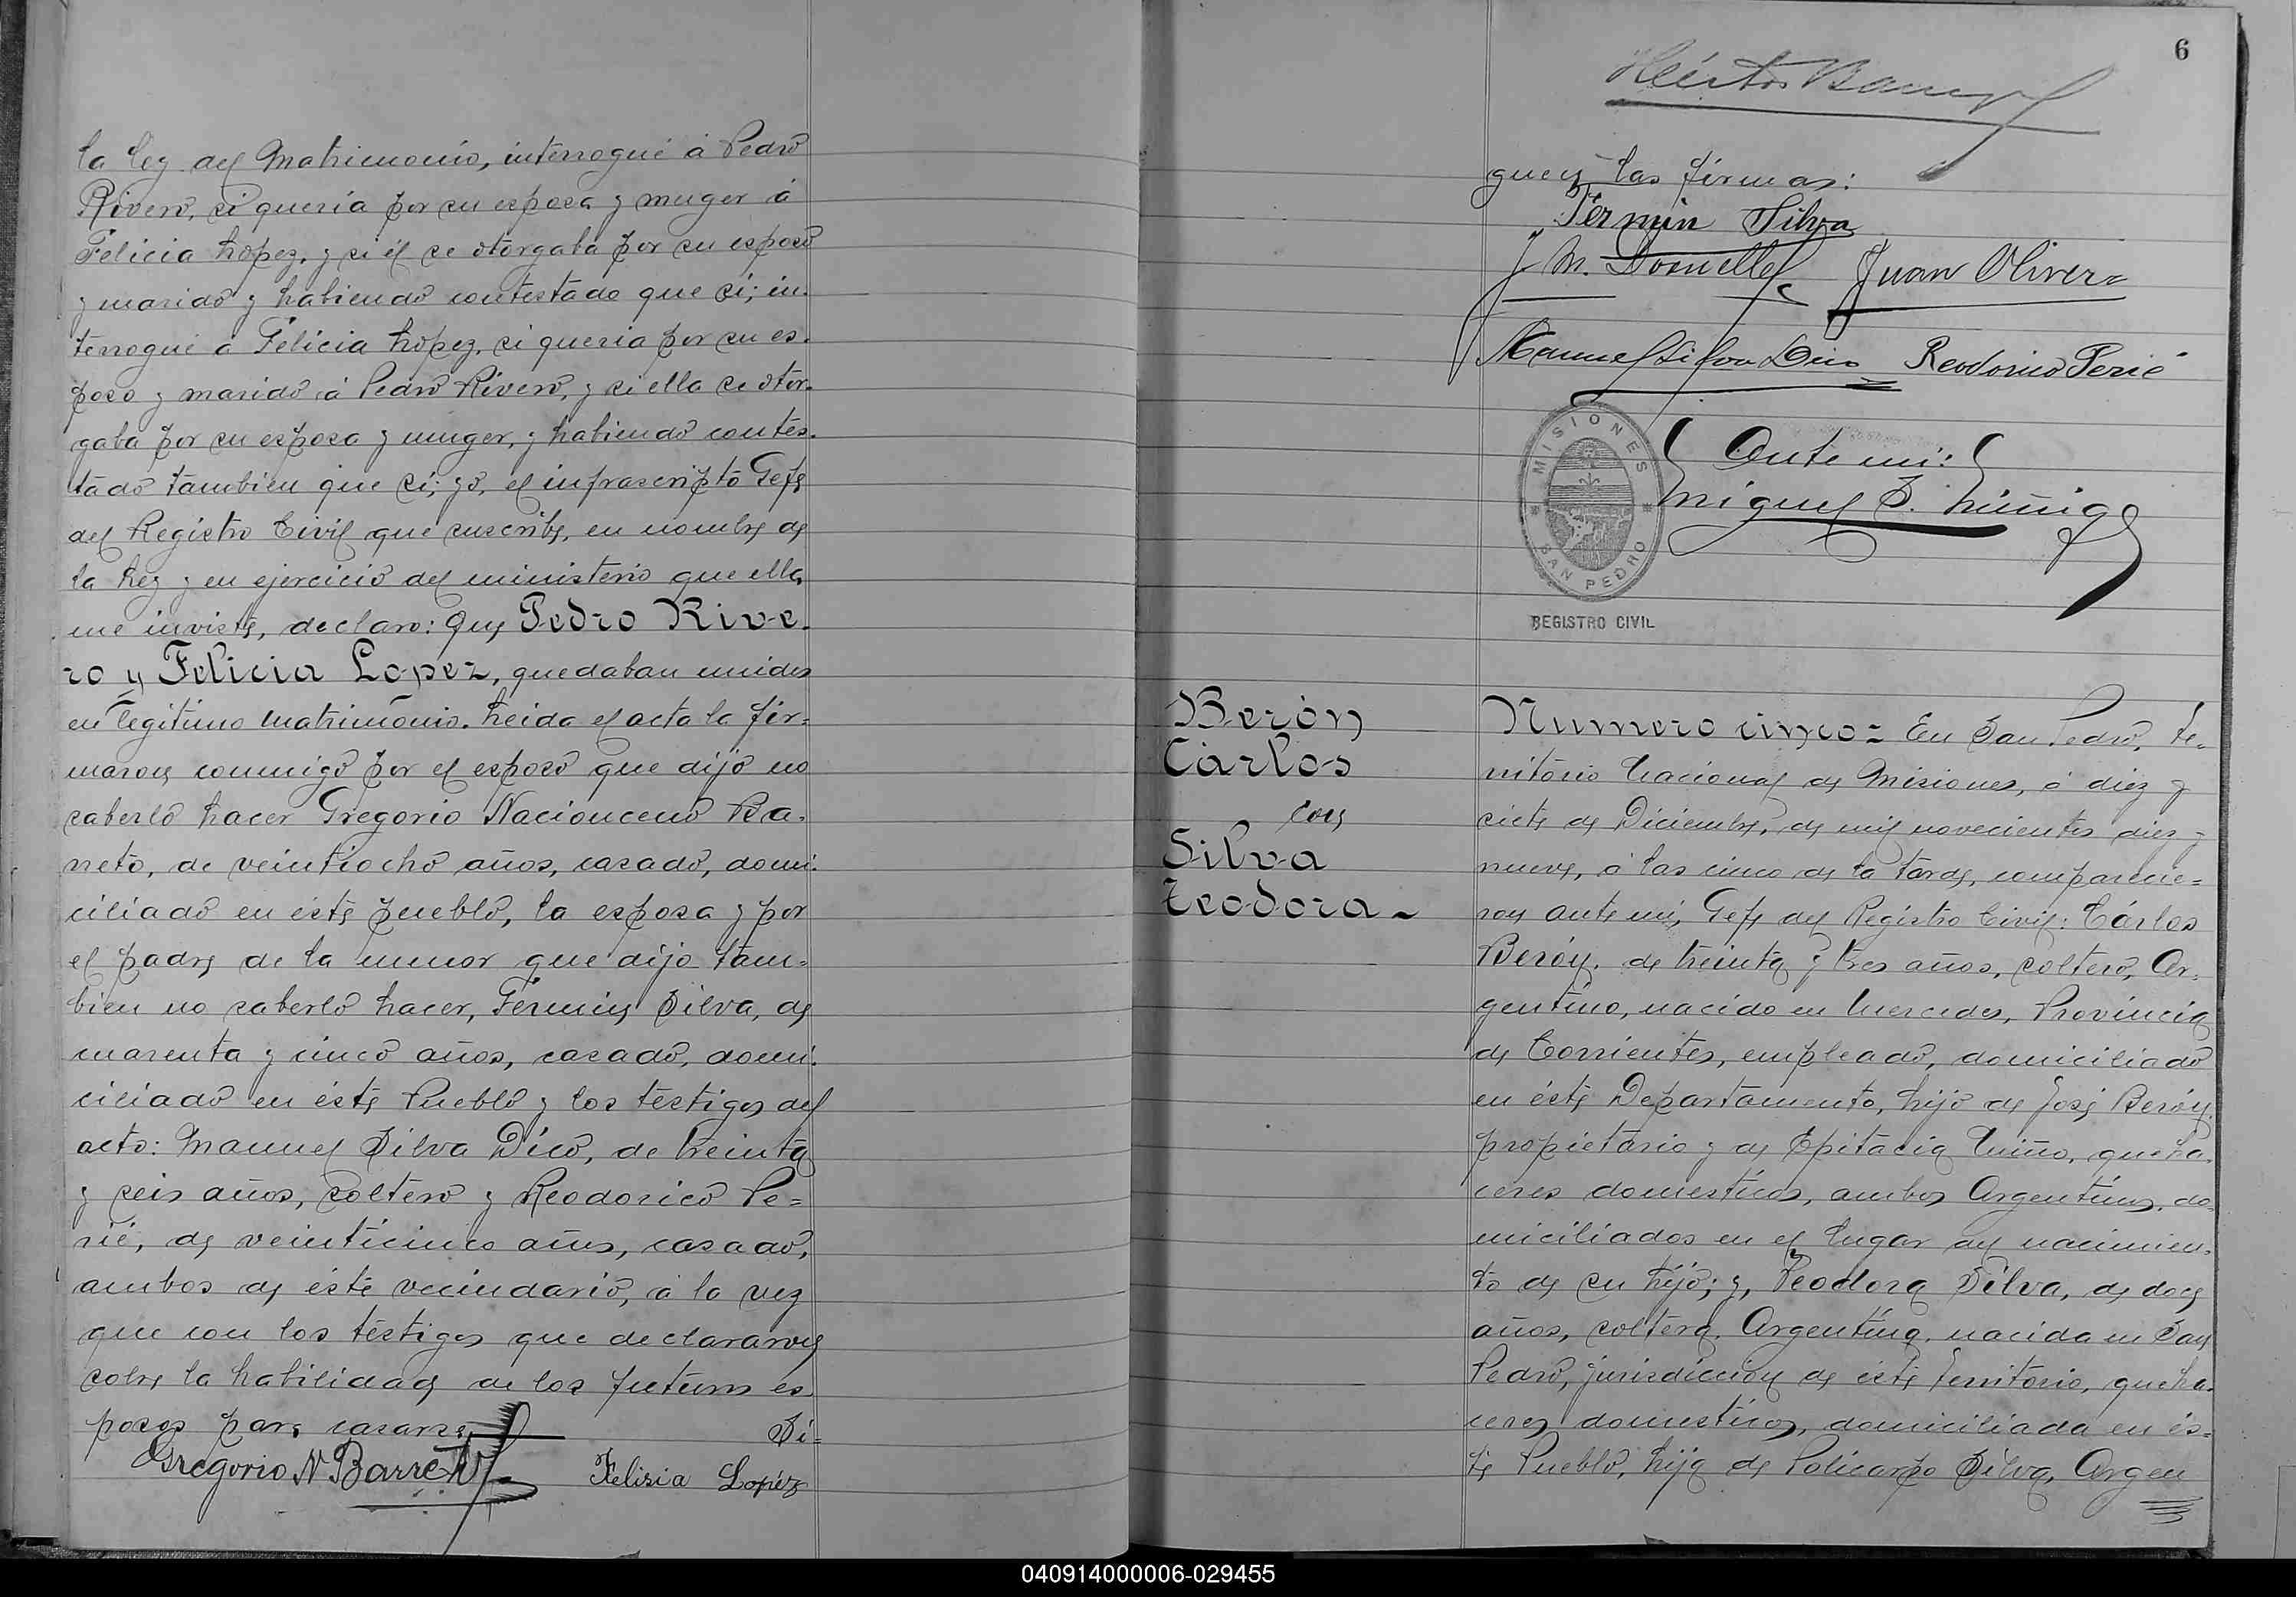 la ley del Matrimonio, interrogué á Pedro
Rivero, si queria por su esposa y muger á
Felicia Lopez, y si él se otorgaba por su esposo
y marido y habiendo contestado que si; in-
terrogué a Felicia Lopez, si queria por su es-
poso y marido á Pedro Rivero, y si ella se otor-
gaba por su esposa y muger, y habiendo contes-
tado tambien que si; yo, el infrascripto Gefe
del Registro Civil que suscribe, en nombre de
la Ley y en ejercicio del ministerio que ella
me inviste, declaro: Que Pedro Rive-
ro y Felicia Lopez, quedaban unidos
en legitimo Matrimonio. Leida el acta la fir=
maron conmigo por el esposo que dijo no
saberlo hacer Gregorio Nacionceno Ba-
rreto, de veintiocho años, casado, domi-
ciliado en éste pueblo, la esposa y por
el padre de la menor que dijo tam=
bien no saberlo hacer, Fermin Silva, de
cuarenta y cinco años, casado, domi-
ciliado en éste Pueblo y los testigos del
acto: Manuel Silva Dico, de treinta
y seis años, soltero y Reodorico Pe=
rié, de veinticinco años, casado,
ambos de éste vecindario, á la vez
que con los testigos que declararon
sobre la habilidad de los futuros es
posos para casarse Si=
Gregorio N Barreto Felisia Lopéz
6
guen las firmas:
Fermin Silva
J M. Juan Olivera
Manuel Silva Dico Reodorico Perié
MISIONES
SAN PEDRO
REGISTRO CIVIL
Ante mi:
Miguel S.
Berón
Cárlos
con
Silva
Teodora -
Numero cinco = En San Pedro, te-
rritorio Nacional de Misiones, á diez y
siete de Diciembre, de mil novecientos diez y
nueve, á las cinco de la tarde, comparecie=
ron ante mi, Gefe del Registro Civil: Cárlos
Berón, de treinta y tres años, soltero, Ar-
gentino, nacido en Mercedes, Provincia
de Corrientes, empleado, domiciliado
en éste Departamento, hijo de José Berón,
propietario y de Epitacia, queha-
ceres domesticos, ambos Argentinos, do-
miciliados en el lugar del nacimien-
to de su hijo; y, Teodora Silva, de doce
años, soltera, Argentina, nacida en San
Pedro, jurisdicción de éste Territorio, queha-
ceres domesticos, domiciliada en és-
te Pueblo, hija de Policarpo Silva, Argen
040914000006-029455